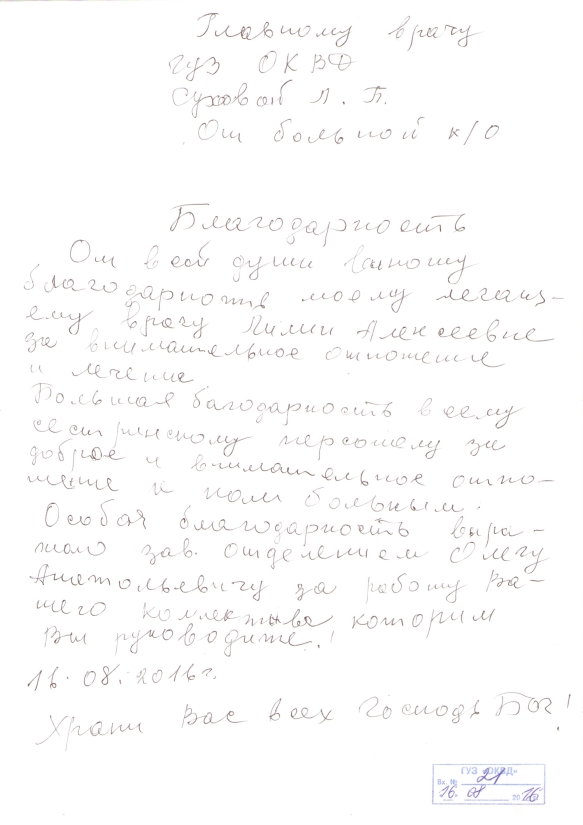 Главному врачу
ГУЗ ОКВД
Суховой Л. П.
От больной к/о
Благодарность
От всей души выношу
благодарность моему лечащ-
ему врачу Лилии Алексеевне
за внимательное отношение
и лечение.
Большая багодарность всему
сестринскому персоналу за
доброе и внимательное отно-
шение к нам больным.
Особая благодарность выра-
жаю зав. отделением Олегу
Анатольевичу за работу Ва-
шего коллектива которим
Вы руководите.!
16.08.2016г.
Храни Вас всех Господь Бог!
ГУЗ «ОКВД»
Вх. № 21
16. 08 2016